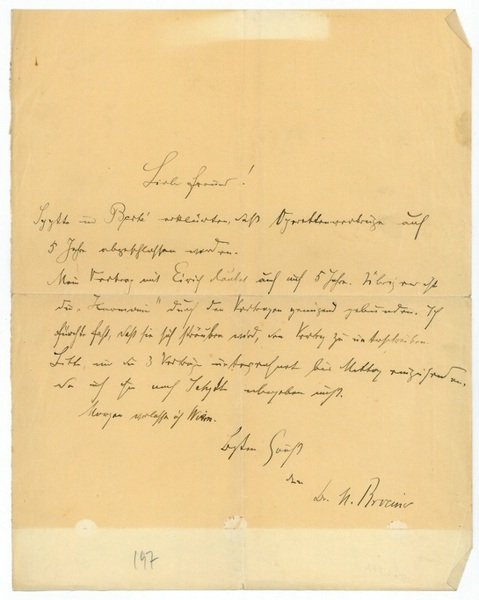 Lieber Freund!
und Berté erklärten, daß Operettenverträge auf
5 Jahre abgeschlossen werden.
Mein Vertrag mit Eirich lautet auch auf 5 Jahre. Übrigens ist
die „ " durch den Vertrag genügend gebunden. Ich
fürchte fast, daß sie sich sträuben wird, den Vertrag zu unterschreiben.
Bitte, mir die 3 Verträge unterzeichnet bis Mittag
da ich sie noch übergeben muß.
Morgen verlasse ich Wien.
Besten Gruß
Dein
Dr. M. Brociner
197